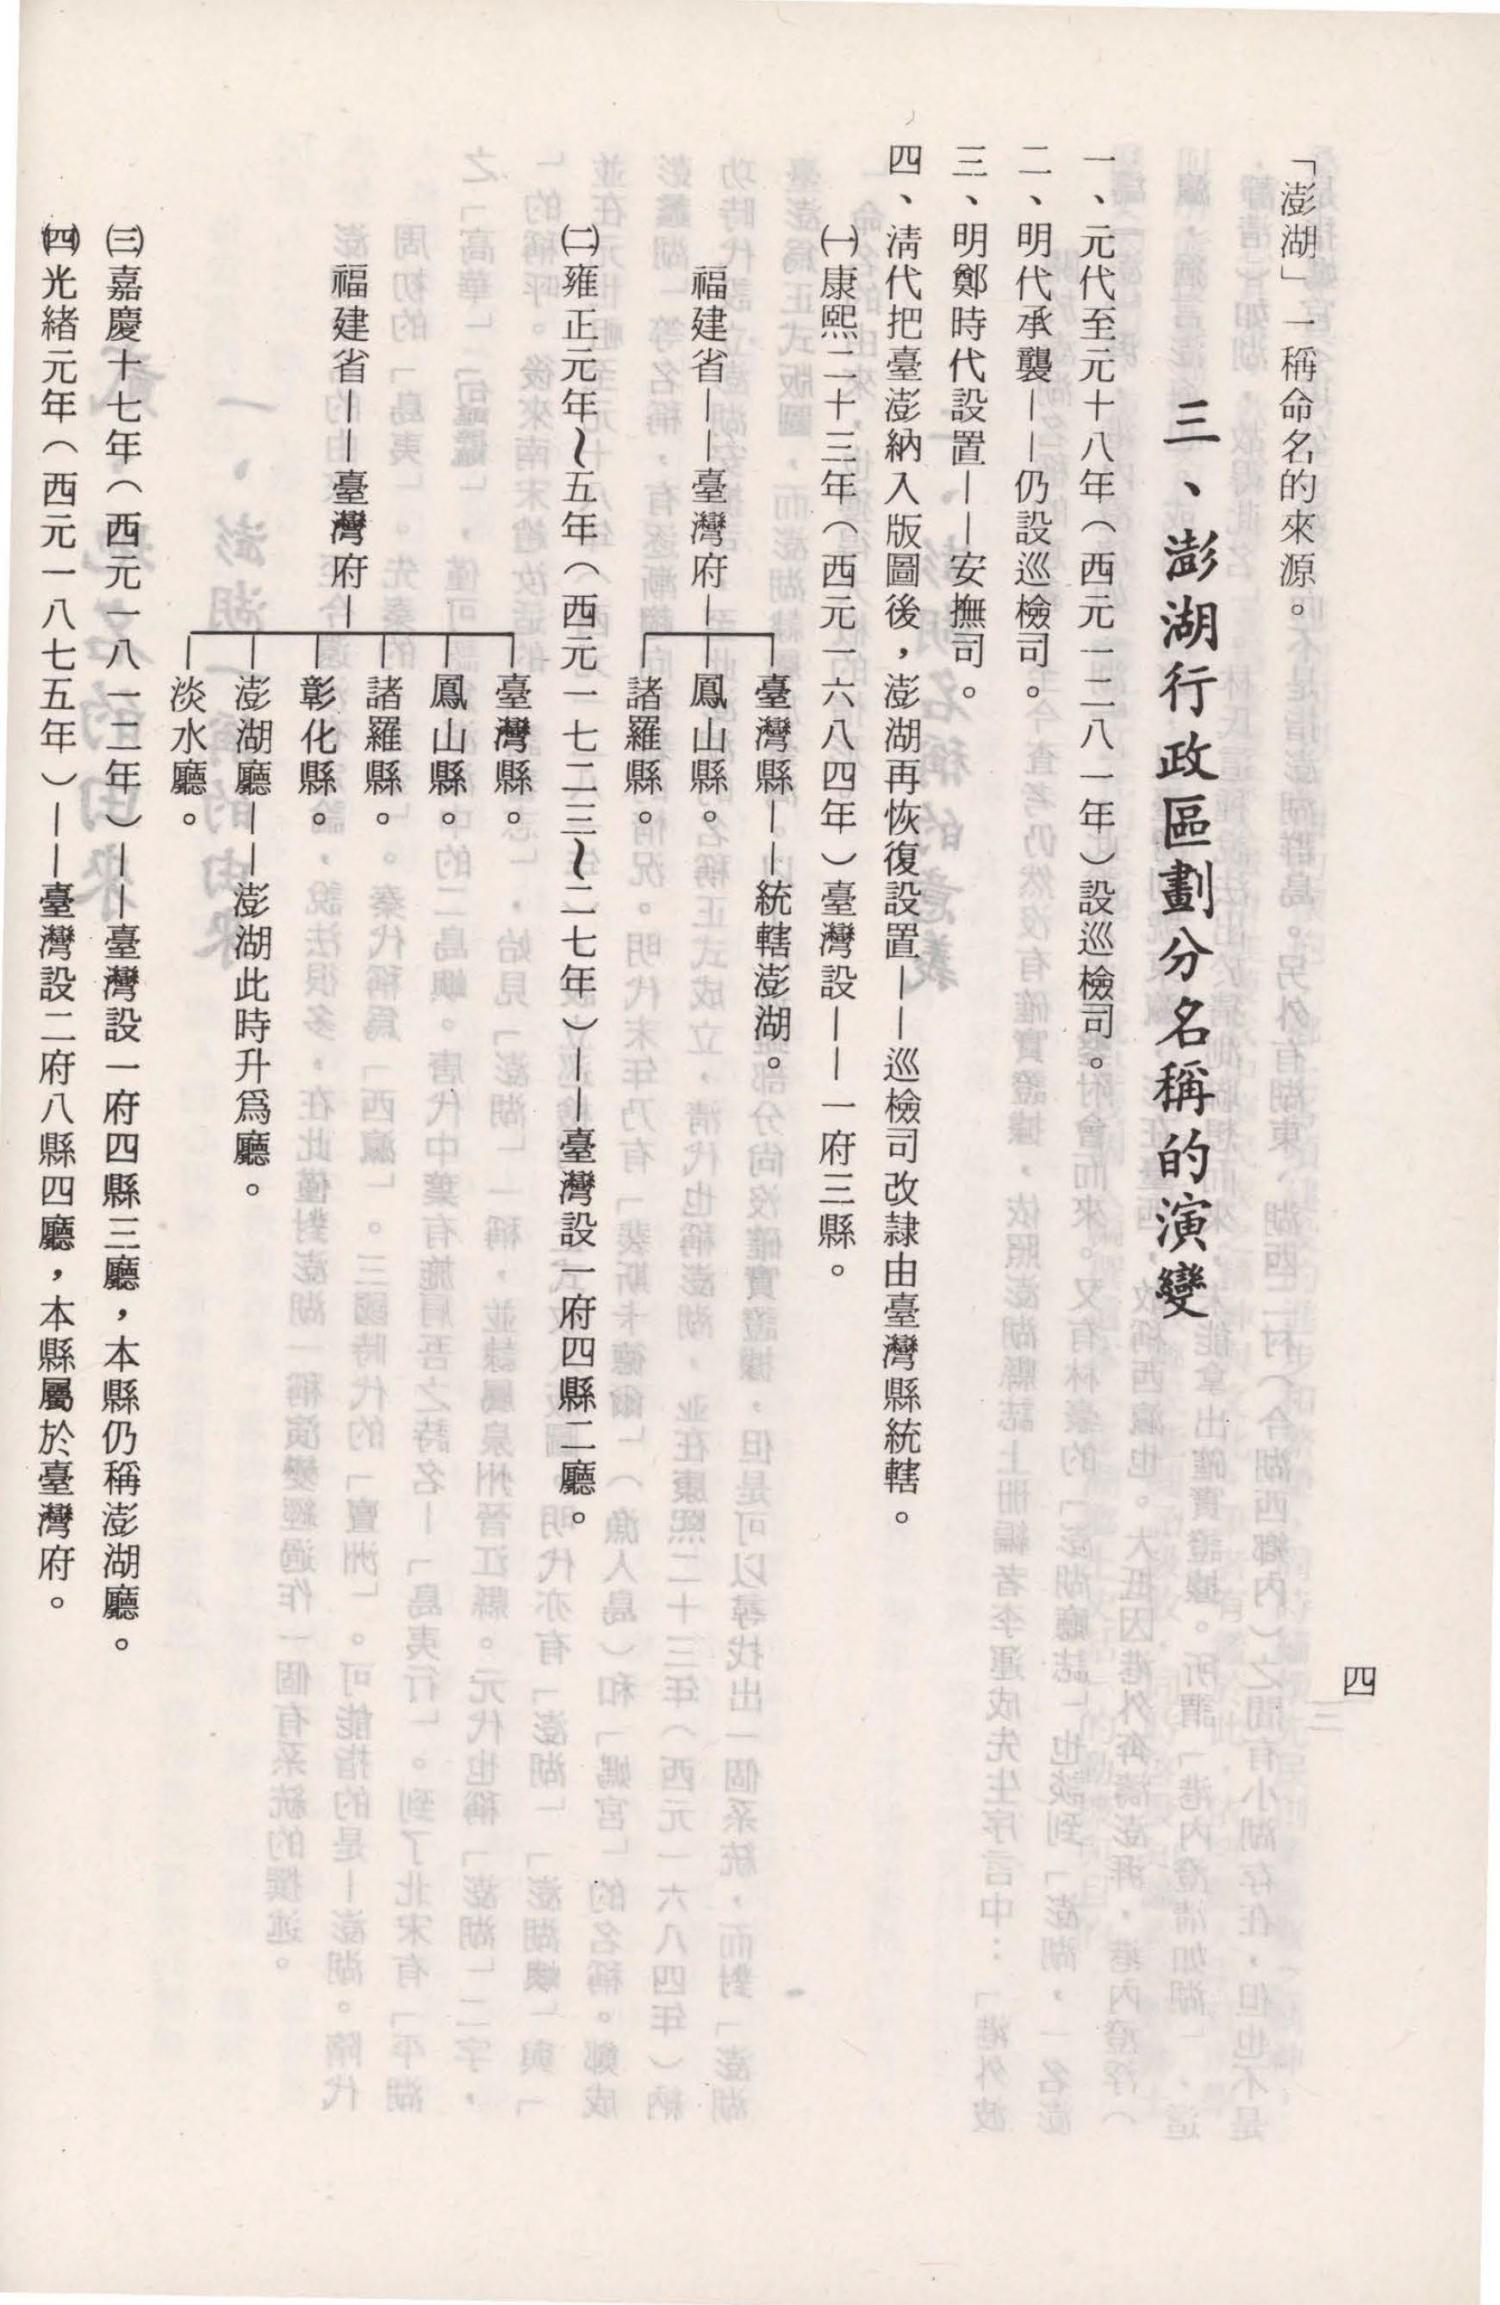 「澎湖」一稱命名的來源。
三、澎湖行政區劃分名稱的演變
一、元代至元十八年（西元一二八一年）設巡檢司。
二、明代承襲——仍設巡檢司。
三、明鄭時代設置——安撫司。
四、清代把臺澎納入版圖後，澎湖再恢復設置——巡檢司改隸由臺灣縣統轄。
㈠康熙二十三年（西元一六八四年）臺灣設——一府三縣。
福建省——臺灣府—
臺灣縣——統轄澎湖。
鳳山縣。
諸羅縣。
㈡雍正元年～五年（西元一七二三～二七年）——臺灣設一府四縣二廳。
福建省——臺灣府—
臺灣縣。
鳳山縣。
諸羅縣。
彰化縣。
澎湖廳——澎湖此時升爲廳。
淡水廳。
㈢嘉慶十七年（西元一八一二年）——臺灣設一府四縣三廳，本縣仍稱澎湖廳。
㈣光緒元年（西元一八七五年）——臺灣設二府八縣四廳，本縣屬於臺灣府。
四